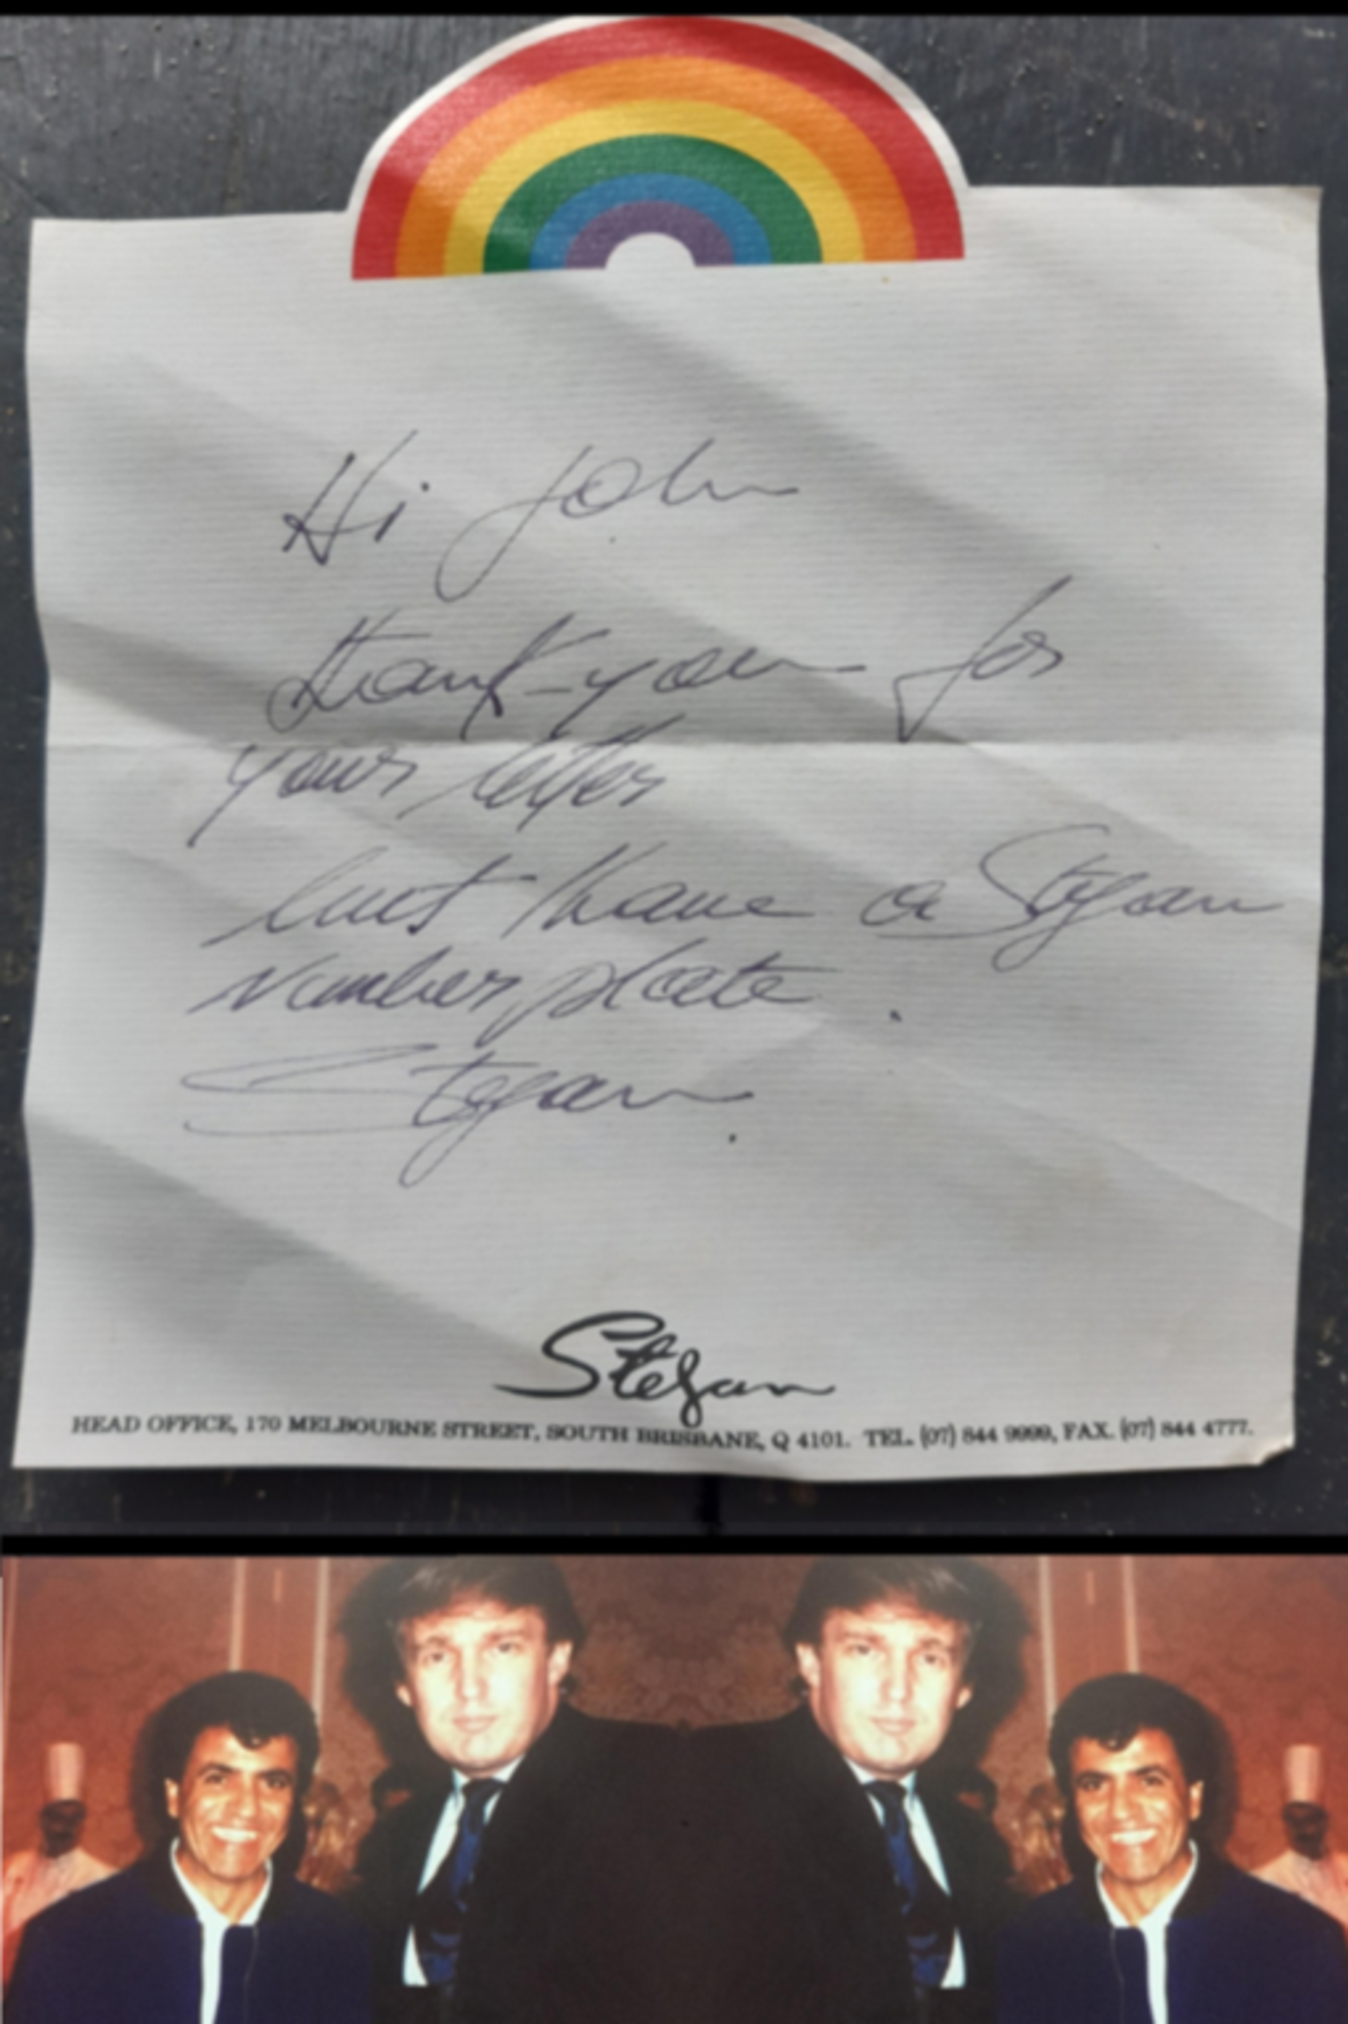 Hi John
Thank-you for
your letter
but I have a Stefan
Number plate.
Stefan.
Stefan
HEAD OFFICE, 170 MELBOURNE STREET, SOUTH BRISBANE, Q 4101. TEL. (07) 844 9999, FAX. (07) 844 4777.